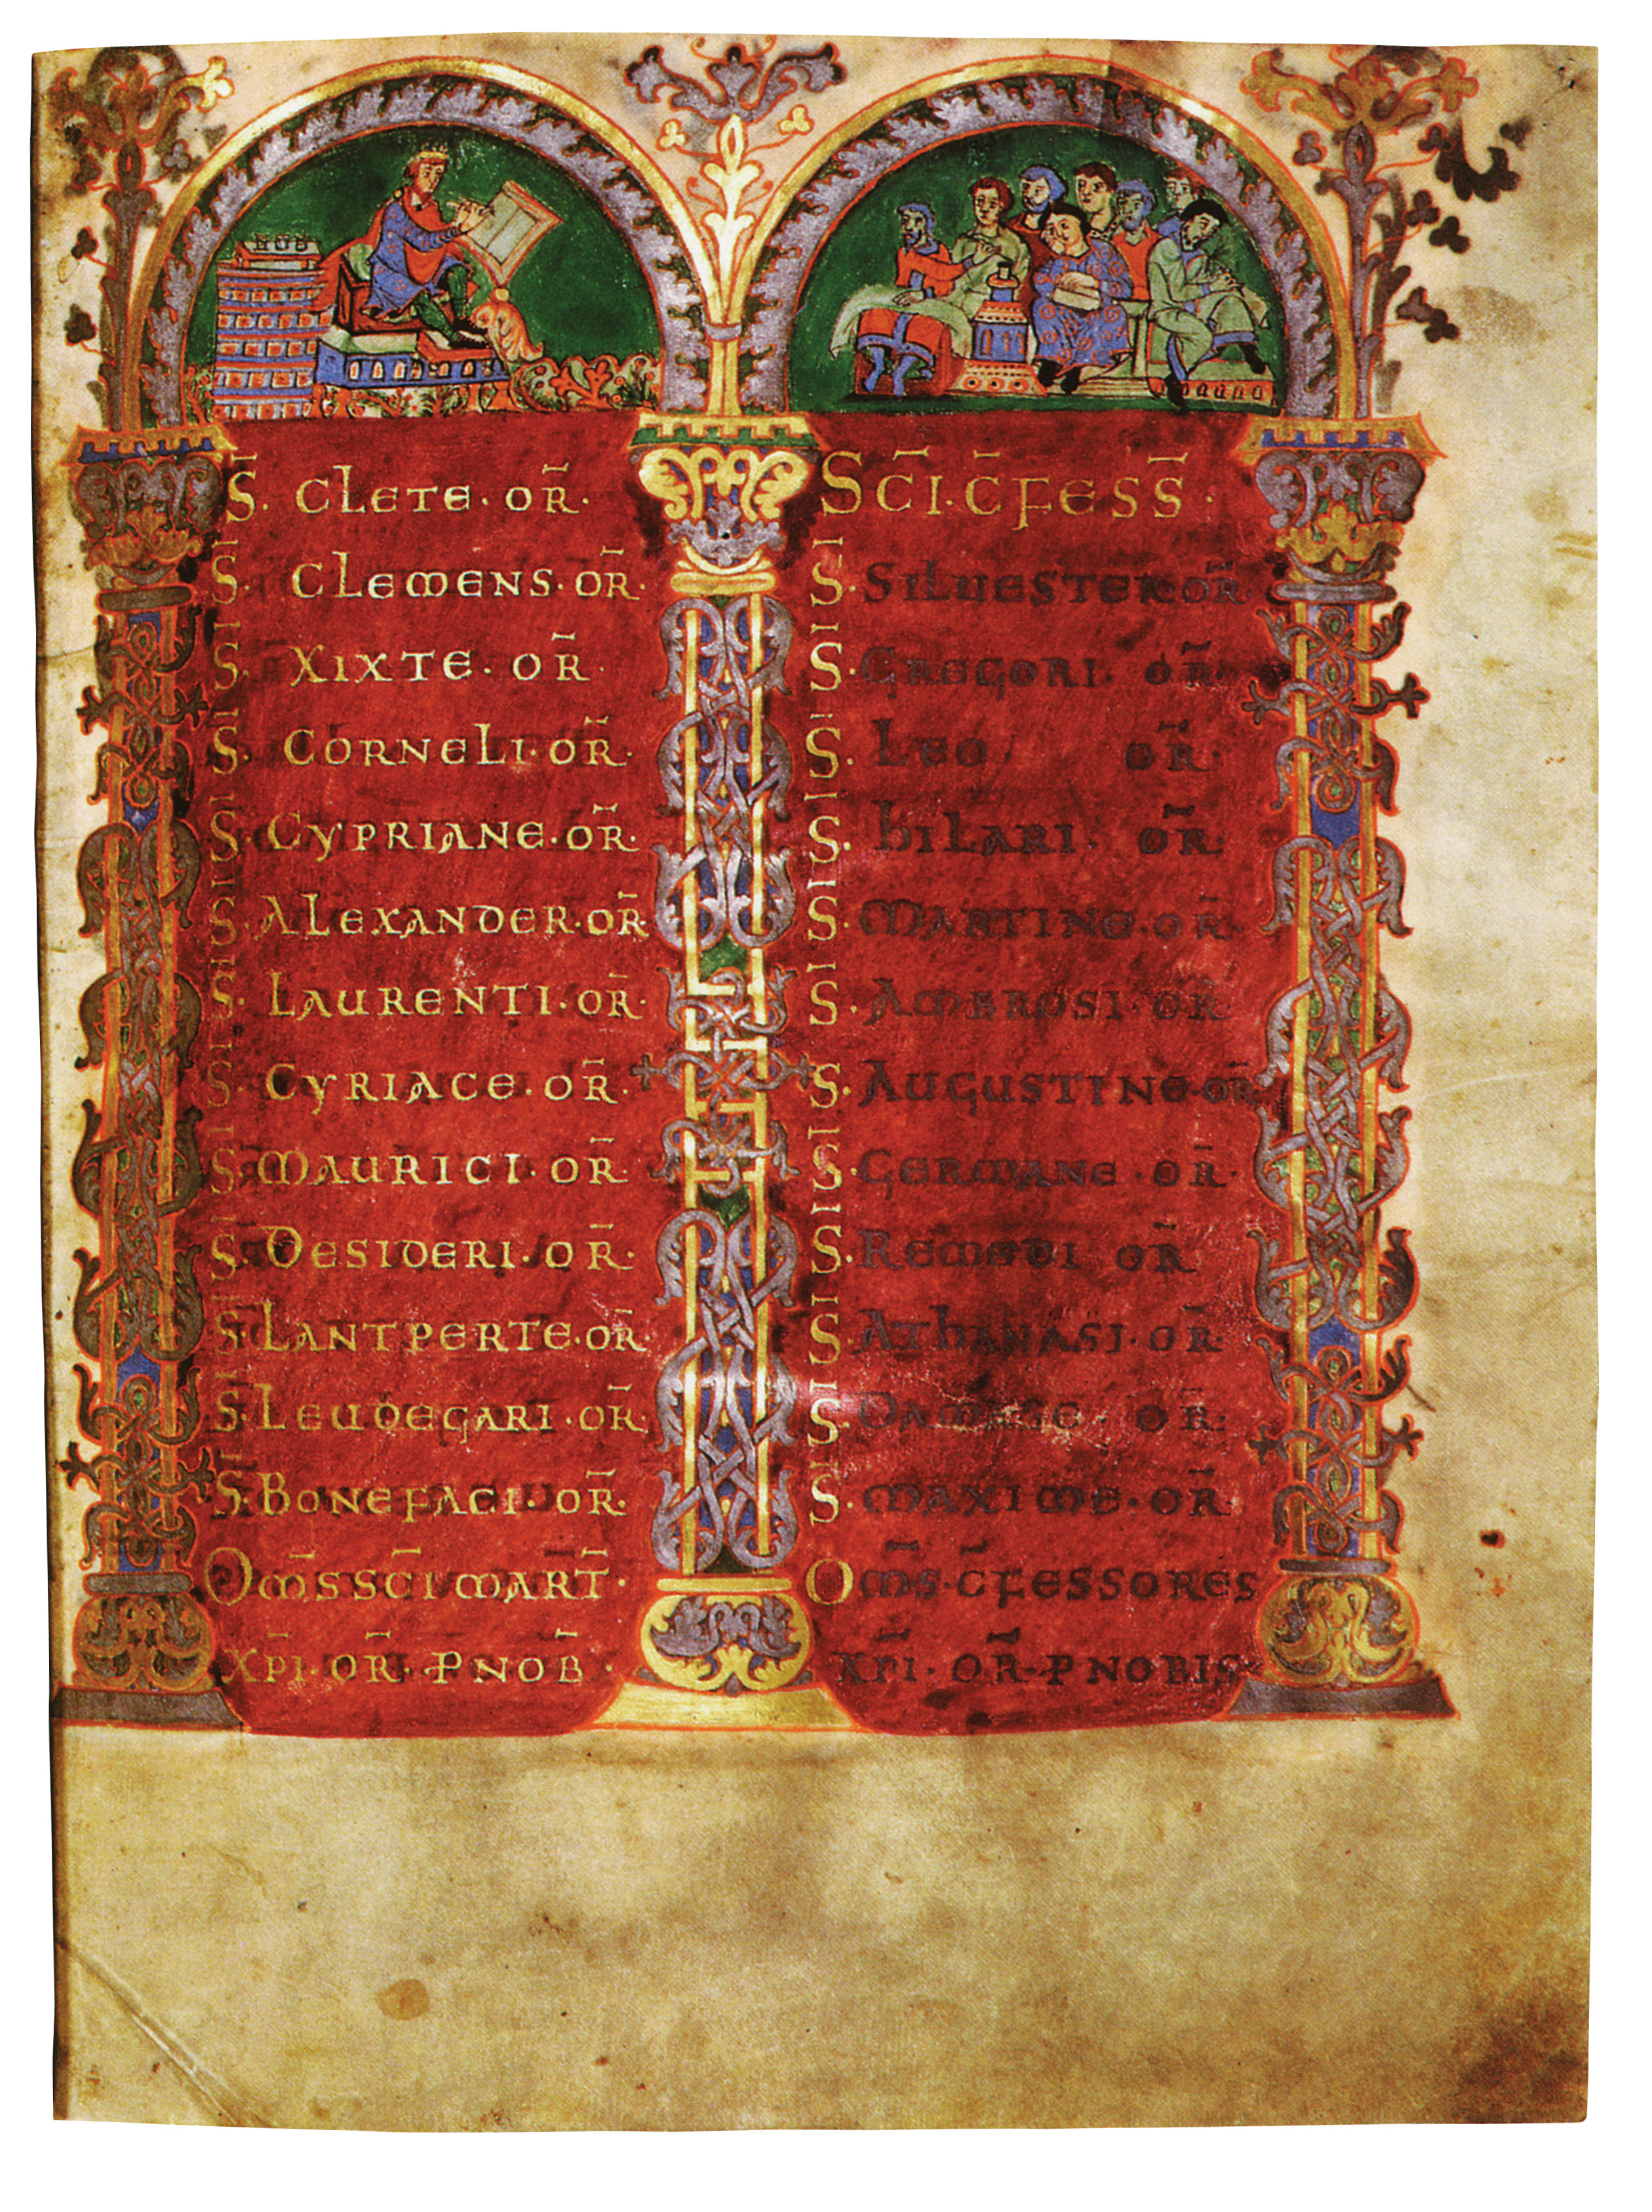 S̄. CLETE. OR̄.
S̄. CLEMENS. OR̄.
S̄. XIXTE. OR̄.
S̄. CORNELI. OR̄.
S̄. CYPRIANE. OR̄.
S̄. ALEXANDER. OR̄
S̄. LAURENTI. OR̄.
S̄. CYRIACE. OR̄.
S̄. MAURICI. OR̄.
S̄. DESIDERI. OR̄.
S̄. LANTPERTE. OR̄.
S̄. LEUDEGARI. OR̄.
S̄. BONEFACI. OR̄.
OM̄S SC̄I MART̄.
XP̄I. OR̄. PNOB̄.
SC̄I. C̄FESS̄.
S̄. SILUESTER. OR̄.
S̄. GREGORI. OR̄.
S̄. LEO OR̄.
S̄. hILARI. OR̄.
S̄. MARTINE. OR̄.
S̄. AMBROSI. OR̄.
S̄. AUGUSTINE. OR̄.
S̄. GERMANE. OR̄.
S̄. REMEDI OR̄
S̄. AThANASI. OR̄.
S̄. DAMASE. OR̄.
S̄. MAXIME. OR̄.
OM̄S. C̄FESSORES
XP̄I. OR̄. PNOBIS